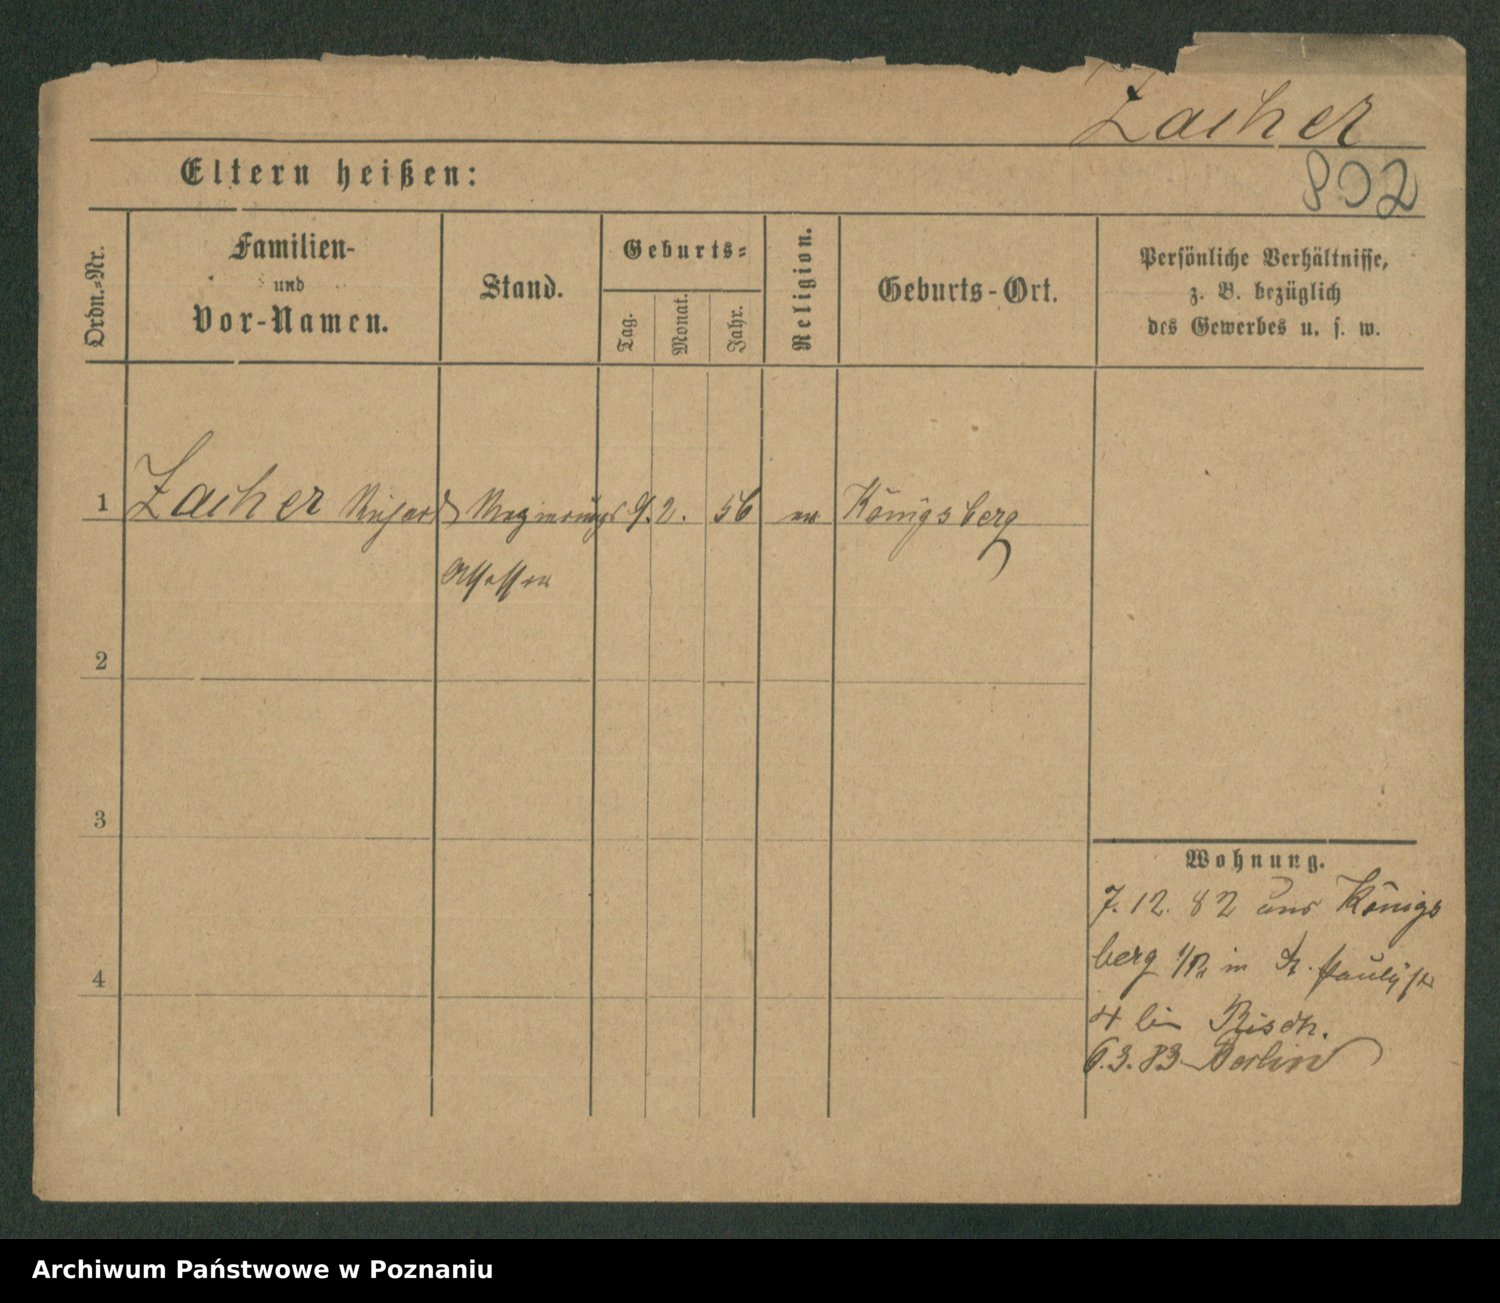 Zacher
802
Eltern heißen:
Ordn.-Nr.
Familien-
und
Vor-Namen.
Stand.
Geburts-
Tag.
Monat.
Jahr.
Religion.
Geburts-Ort.
Persönliche Verhältnisse,
z. B. bezüglich
des Gewerbes u. s. w.
1 Zacher Richard Regierungs 9. 2. 56 ev Königsberg
Assessor
2
3
4
Wohnung.
7. 12. 82 aus Königs
berg 1/12 in St.
4 bei
6.3.83 Berlin
Archiwum Państwowe w Poznaniu